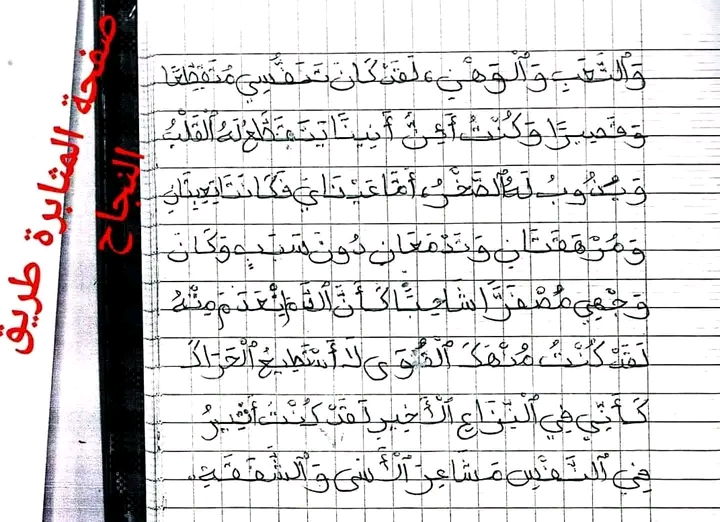 صفحة المثابرة طريق
النجاح
وَٱلتَّعَبِ وَٱلْوَهْنِ، لَقَدْ كَانَ تَنَفُّسِي مُتَقَطِّعًا
وَقَصِيرًا وَكُنْتُ أَئِنُّ أَنِينًا يَتَقَطَّعُ لَهُ ٱلْقَلْبُ
وَيَذُوبُ لَهُ ٱلصَّخْرُ، أَمَّا عَيْنَايَ فَكَانَتَا
وَمُرْهَقَتَانِ وَتَدْمَعَانِ دُونَ سَبَبٍ وَكَانَ
وَجْهِي مُصْفَرًّا شَاحِبًا كَأَنَّ ٱلدَّمَ ٱنْعَدَمَ مِنْهُ
لَقَدْ كُنْتُ مُنْهَكَ ٱلْقُوَى لَا أَسْتَطِيعُ ٱلْحَرَاكَ
كَأَنِّي فِي ٱلنِّزَاعِ ٱلْأَخِيرِ لَقَدْ كُنْتُ أُثِيرُ
فِي ٱلنَّفْسِ مَشَاعِرَ ٱلْأَسَى وَٱلشَّفَقَةِ.